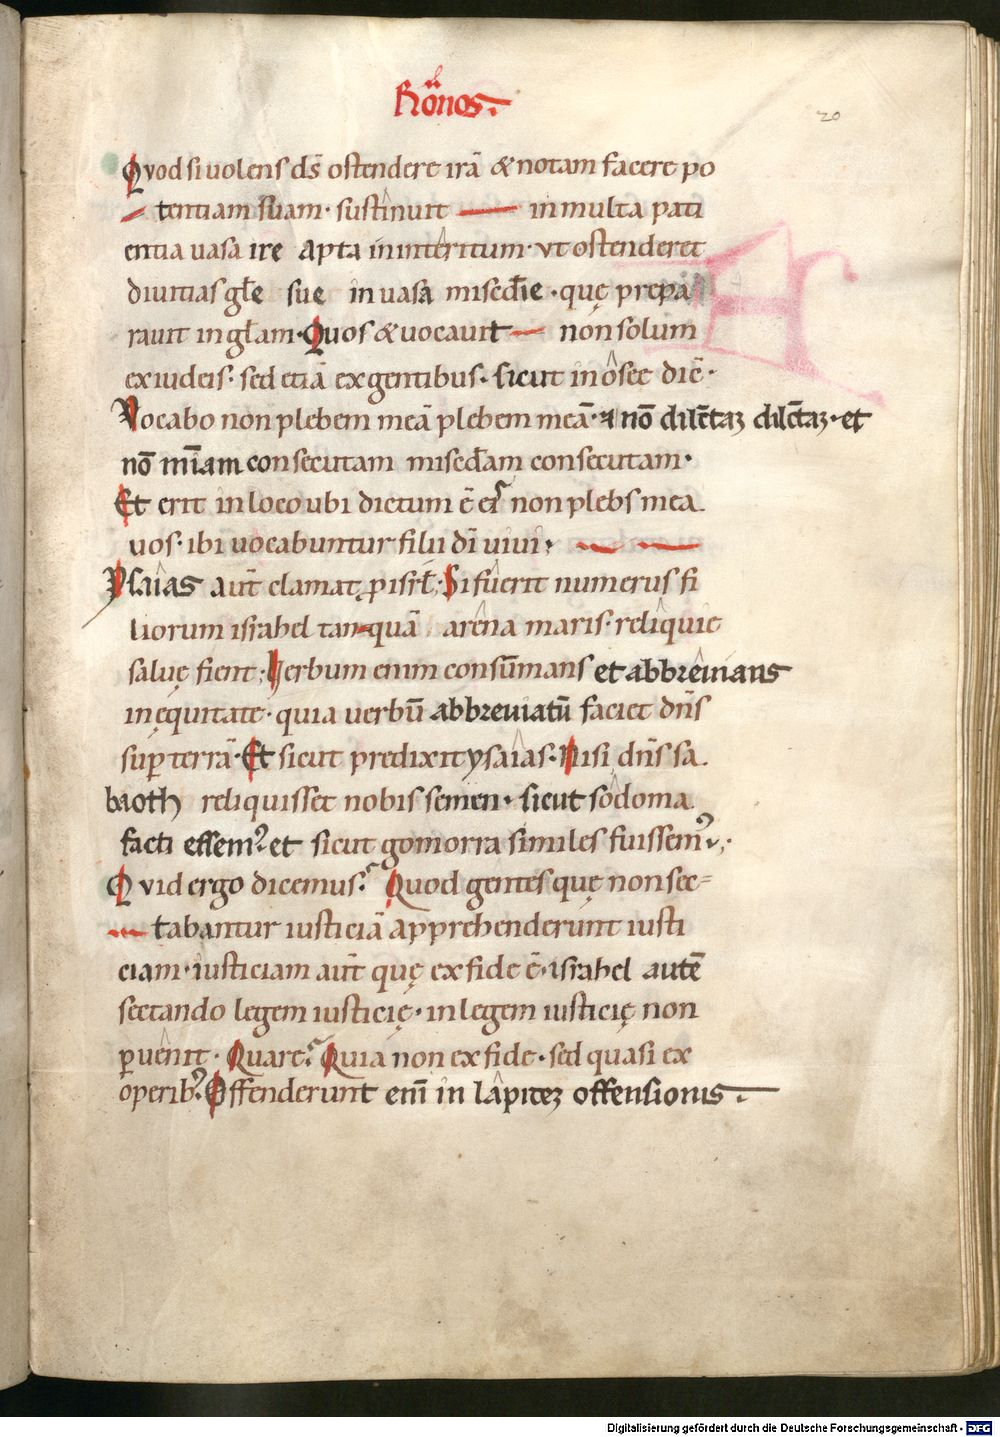 Rōnos.
20
Qvod si uolens ds̄ ostendere irā & notam facere po
tentiam suam· sustinuit in multa pati
entia uasa ire apta in interitum· vt ostenderet
diuitias gl̄e sue in uasa misedīe · quę prepa
rauit in gl̄am· Quos & uocauit non solum
ex iudeis· sed etiā ex gentibus· sicut in osee dic̄·
Vocabo non plebem meā plebem meā· & nō dilc̄taꝫ dilc̄taꝫ· et
nō mīam consecutam misedām consecutam·
Et erit in loco ubi dictum ē ei non plebs mea
uos· ibi uocabuntur filii dī uiui·
Ysaias aut̄ clamat ꝓ isrł· Si fuerit numerus fi
liorum israhel tanquā arena maris· reliquie
saluę fient· Verbum enim consum̄ans et abbreuians
in ęquitate· quia uerbū abbreuiatū faciet dn̄s
suꝑ terrā· Et sicut predixit ysaias· Nisi dn̄s sa
baoth reliquisset nobis semen· sicut sodoma
facti essemꝰ et sicut gomorra similes fuissemꝰ·
Qvid ergo dicemus? Quod gentes quę non sec=
tabantur iusticiā apprehenderunt iusti
ciam· iusticiam aut̄ quę ex fide ē· israhel autē
sectando legem iusticię· in legem iusticię non
ꝑuenit· Quare? Quia non ex fide· sed quasi ex
operibꝰ Offenderunt enī in lapideꝫ offensionis.
Digitalisierung gefördert durch die Deutsche Forschungsgemeinschaft - DFG